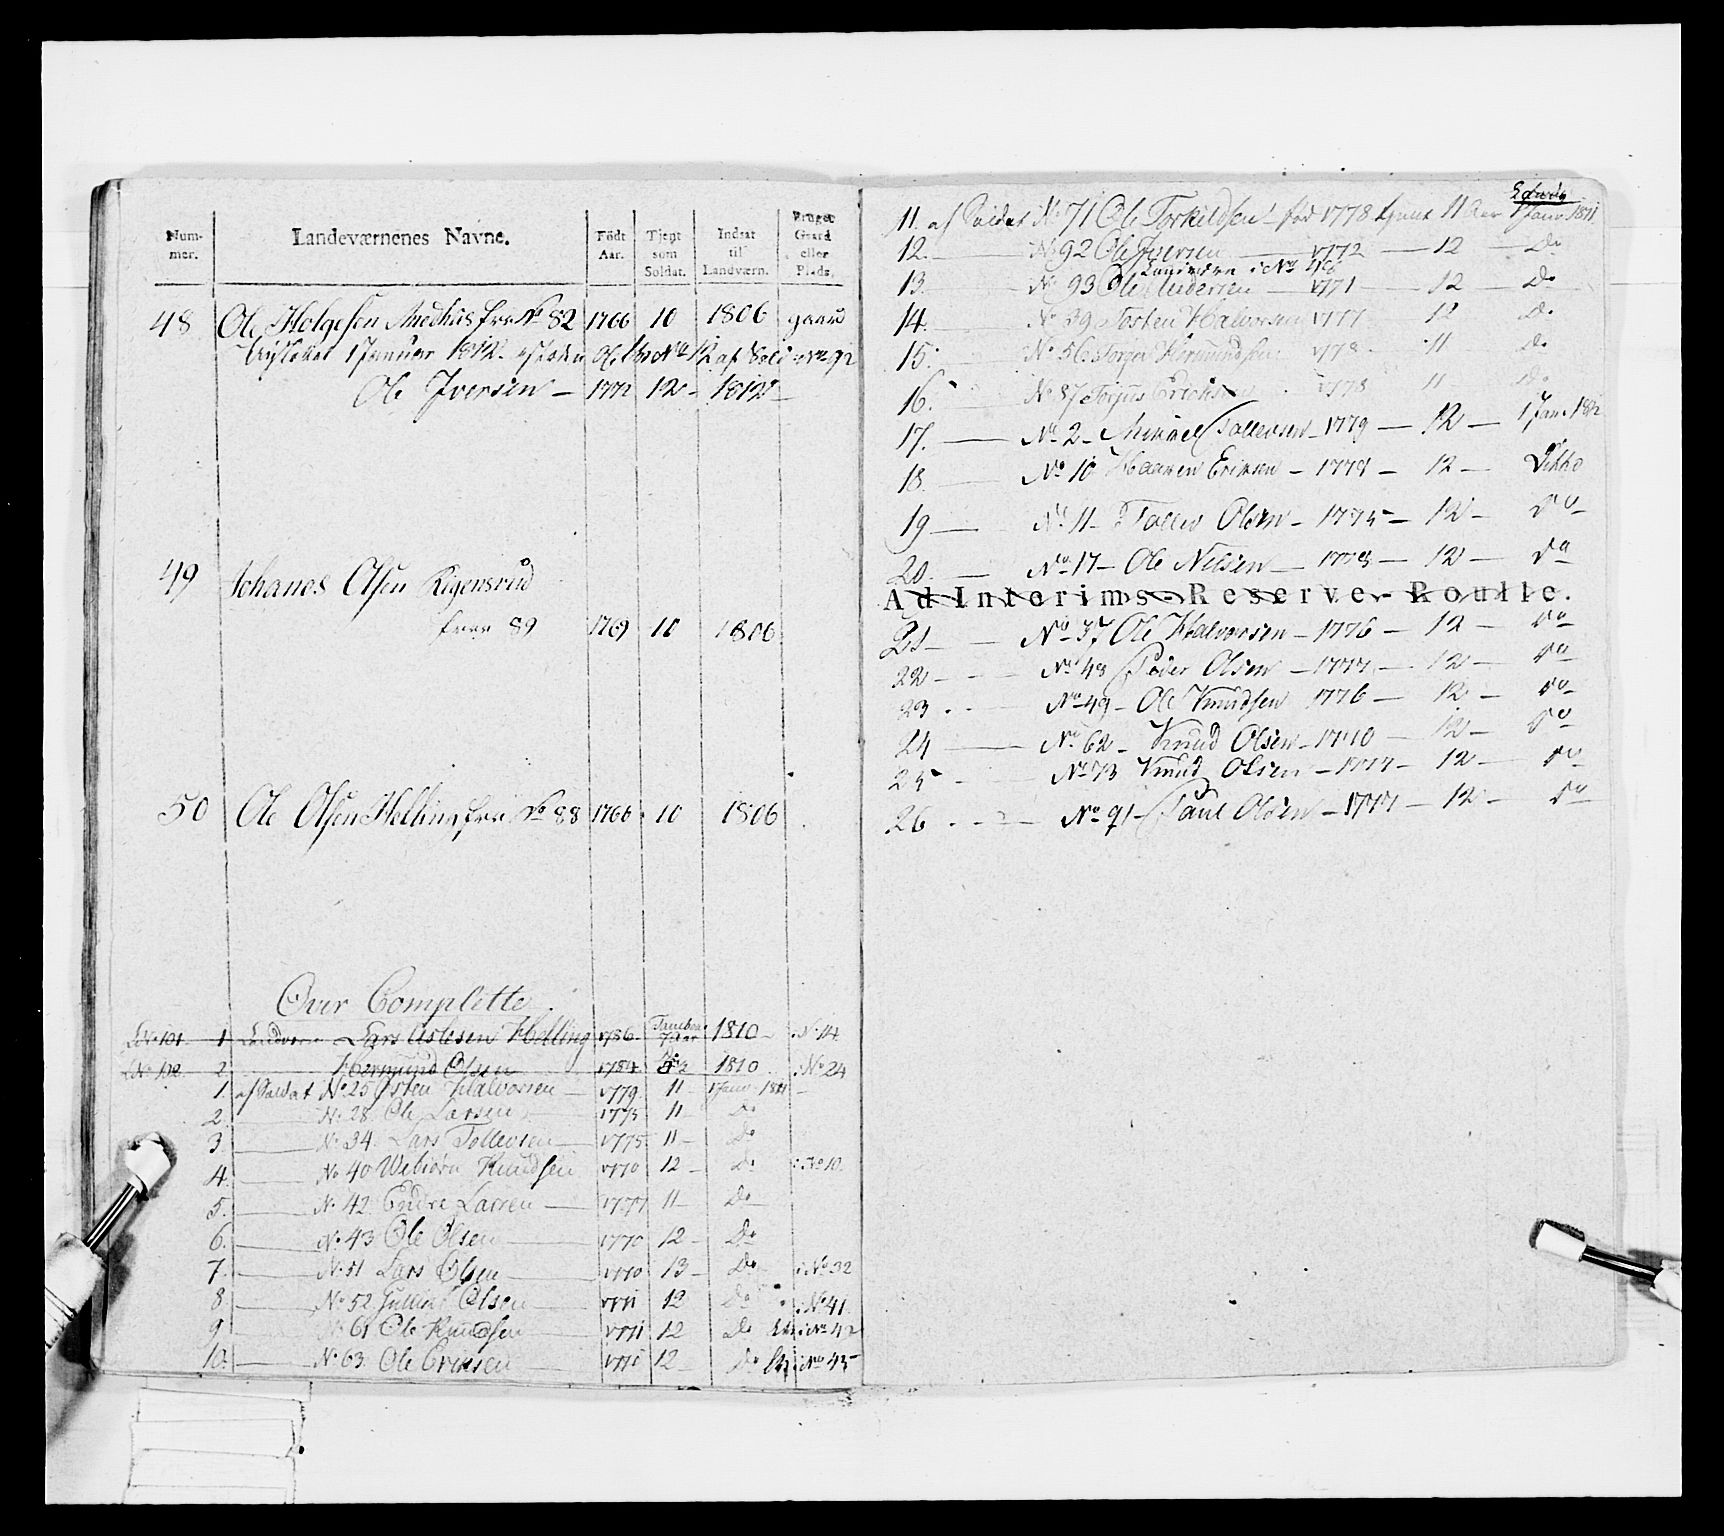 Num-
mer.
Landeværnenes Navne.
Födt
Aar.
Tjent
som
Soldat.
Indsat
til
Landværn.
Bruger
Gaard
eller
Plads.
48 Ole Holgesen Medhus fra No 82 1766 10 1806 gaard
1 Januar 1812
Ole Iversen - 1772 12 - 1812 -
49 Johanes Olsen Rigensrud
fra 89 1769 10 1806
50 Ole Olsen Helling fra No 88 1766 10 1806
Over Complette
No 101 1 Landværn Lars Aslesen Helling 1786 7 Aar 1810 - No 14
No 102 2 Hermund Olsen 1784 1810 No 24
1. af Soldat No 25 Østen Halvorsen 1779 11 - 1 Janr 1811 -
2. No 28 Ole Larsen 1775 11 - Do
3 No 34 Lars Tollevsen 1775 11 - Do
4. No 40 Webiørn Knudsen 1770 12 - Do i No 10
5. No 42 Endre Larsen 1777 11 - Do
6. No 43 Ole Olsen 1770 12 - Do
7. No 51 Lars Olsen 1770 13 - Do i No 32
8. No 52 Olsen 1771 12 Do i No 41
9 No 61 Ole Knudsen 1771 12 Do i No 42
10. No 63 Ole Eriksen 1771 12 - Do i No 45
11. af Soldat No 71 Ole Torkildsen fød 1778 tjent 11 Aar 1 Janr 1811
12. No 92 Ole Iversen 1772 12 Do
Landværn i No 48
13. No 93 Ole Andersen 1771 12 Do
14. No 39 Torsten Halvorsen 1777 12 Do
15. No 56 Torger Hermundsen 1778 11 Do
16. No 87 Torjus Erichsen 1778 11 Do
17. No 2 - Mikael Tollevsen - 1779 - 12 - 1 Jan. 1812
18. No 10 Haaken Eriksen - 1778 - 12 - Ditto
19 No 11 - Tollev Olsen - 1775 - 12 - Do
20. No 17 - Ole Nilsen - 1778 - 12 - Do
Ad Interims-Reserve-Roulle.
21 - No 37 Ole Halvorsen - 1776 - 12 - Do
22 - No 48 Peder Olsen - 1777 - 12 - Do
23 - No 49 - Ole Knudsen 1776 - 12 - Do
24 No 62 - Knud Olsen - 1770 - 12 - Do
25 No 73 Knud Olsen - 1777 - 12 - Do
26 No 91 - Paul Olsen - 1777 - 12 - Do